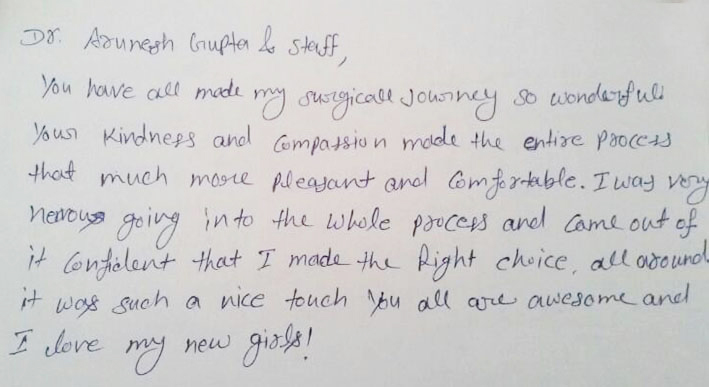 Dr. Arunesh Gupta & Staff,
You have all made my surgicall Journey so wonderful!
Your Kindness and Compassion made the entire Process
that much more Pleasant and Comfortable. I way very
nervous going into the whole process and Came out of
it Confident that I made the Right choice, all around
it was such a nice touch You all are awesome and
I love my new girls!